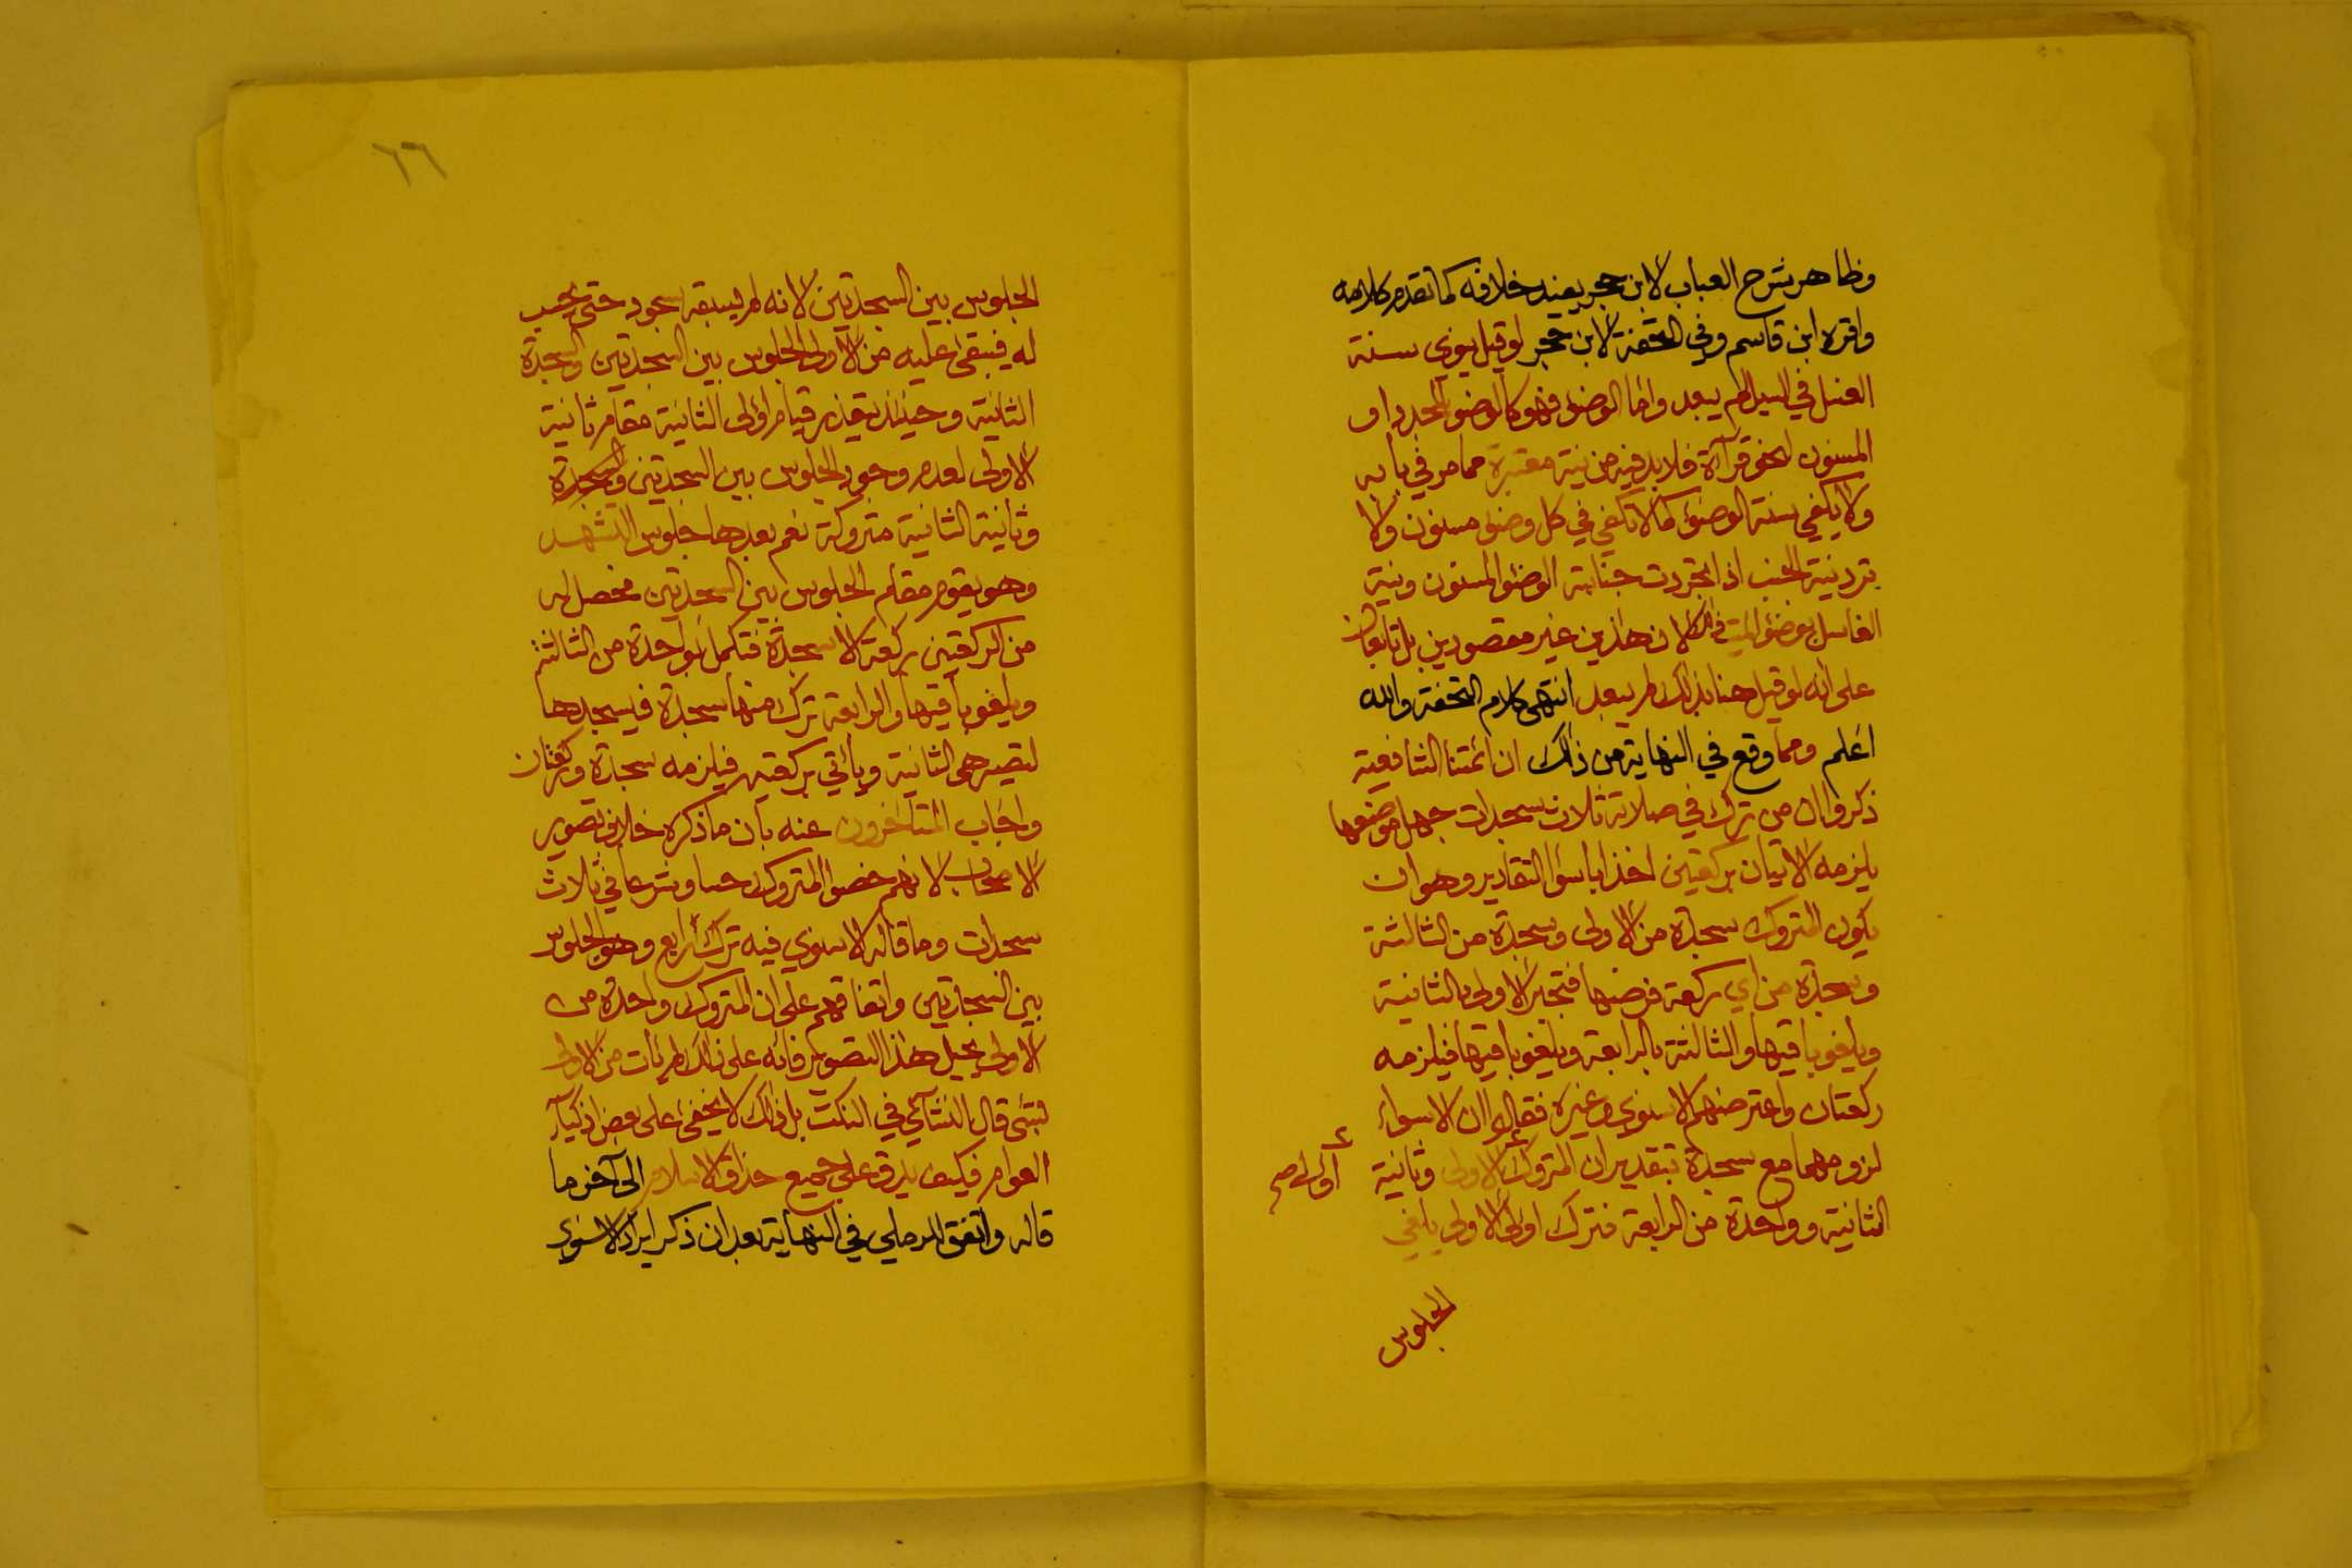 وظاهر شرح العباب لابن حجر يفيد خلافه كما تقدم كلامه
واقره ابن قاسم وفي التحفة لابن حجر لو قيل ينوي سنة
الغسل في السيل لم يبعد واما الوضوء فهو كالوضوء المجدد او
المسنون لنحو قرآءة فلا بد فيه من نية معتبرة مما مر في بابه
ولا يكفي سنة الوضوء كما لا تكفي في كل وضوء مسنون ولا
ترد نية الجنب اذا تجردت جنابته الوضوء المسنون ونية
الغاسل بوضوء الميت ذلك لان هذين غير مقصودين بل تابعان
على انه لو قيل هنا بذلك لم يبعد انتهى كلام التحفة والله
اعلم ومما وقع في النهاية من ذلك ان ائمتنا الشافعية
ذكروا ان من ترك في صلاته ثلاث سجدات جهل موضعها
يلزمه الاتيان بركعتين اخذا باسوأ التقادير وهو ان
يكون المتروك سجدة من الاولى وسجدة من الثالثة
وسجدة من اي ركعة فرضها فتجبر الاولى بالثانية
ويلغو باقيها والثالثة بالرابعة ويلغو باقيها فيلزمه
ركعتان واعترضهم الاسنوي وغيره فقالوا ان الاسواء
لزومهما مع سجدة بتقدير ان المتروك الاولى وثانية
اولى صح
الثانية وواحدة من الرابعة فترك اولى الاولى يلغي
الجلوس
٦٦
الجلوس بين السجدتين لانه لم يسبقه سجود حتى يحسب
له فيبقى عليه من الاولى الجلوس بين السجدتين والسجدة
الثانية وحينئذ يتعذر قيام اولى الثانية مقام ثانية
الاولى لعدم وجود الجلوس بين السجدتين والسجدة
وثانية الثانية متروكة نعم بعدها جلوس التشهد
وهو يقوم مقام الجلوس بين السجدتين فحصل له
من الركعتين ركعة الا سجدة فتكمل بواحدة من الثالثة
ويلغو باقيها والرابعة ترك منها سجدة فيسجدها
لتصير هي الثانية ويأتي بركعتين فيلزمه سجدة وركعتان
واجاب المتأخرون عنه بان ما ذكره خلاف تصوير
الاصحاب لانهم خصوا المتروك حسا وشرعا في ثلاث
سجدات وما قاله الاسنوي فيه ترك رابع وهو الجلوس
بين السجدتين واتفاقهم على ان المتروك واحدة من
الاولى يحيل هذا التصوير فانه على ذلك لم يأت من الاولى
بشئ قال النشآئي في النكت بل ذلك لا يخفى على بعض اذكيآء
العوام فكيف يدق على جميع حذاق الاسلام الى آخر ما
قاله واتفق للرملي في النهاية بعد ان ذكر ايراد الاسنوي